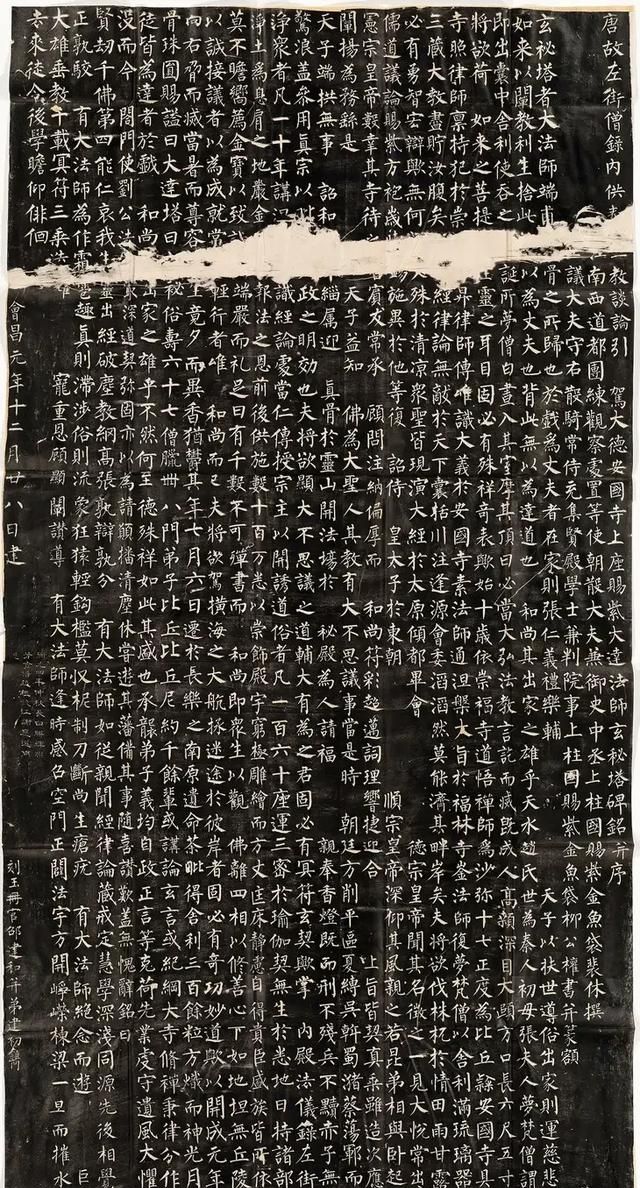 唐故左街僧錄內供 教談論引 駕大德安國寺上座賜紫大達法師玄秘塔碑銘并序
南西道都團練觀察處置等使朝散大夫兼御史中丞上柱國賜紫金魚袋裴休撰
議大夫守右散騎常侍充集賢殿學士兼判院事上柱國賜紫金魚袋柳公權書并篆額
玄秘塔者大法師端甫 骨之所歸也於戲為丈夫者在家則張仁義禮樂輔 天子以扶世導俗出家則運慈悲
如來以闡教利生捨此 以為丈夫也背此無以為達道也 和尚其出家之雄乎天水趙氏世為秦人初母張夫人夢梵僧謂
即出囊中舍利使吞之 誕所夢僧白晝入其室摩其頂曰必當大弘法教言訖而滅既成人高顙深目大頤方口長六尺五寸
將欲荷 如來之菩提 生靈之耳目固必有殊祥奇表歟始十歲依崇福寺道悟禪師為沙弥十七正度為比丘隸安國寺具
寺照律師稟持犯於崇 昇律師傳唯識大義於安國寺素法師通涅槃大旨於福林寺崟法師復夢梵僧以舍利滿琉璃器
三藏大教盡貯汝腹矣 經律論無敵於天下囊括川注逢源會委滔滔然莫能濟其畔岸矣夫將欲伐株杌於情田雨甘露
必有勇智宏辯歟無何 文殊於清涼眾聖皆現演大經於太原傾都畢會 德宗皇帝聞其名徵之一見大悅常出
儒道議論賜紫方袍歲 錫施異於他等復 詔侍 皇太子於東朝 順宗皇帝深仰其風親之若昆弟相與卧起
憲宗皇帝數幸其寺待之 若賓友常承 顧問注納偏厚而 和尚符彩超邁詞理響捷迎合 上旨皆契真乘雖造次應
闡揚為務繇是 天子益知 佛為大聖人其教有大不思議事當是時 朝廷方削平區夏縛吳斡蜀潴蔡蕩鄆而
天子端拱無事 詔和 緇属迎 真骨於靈山開法場於 秘殿為人請福 親奉香燈既而刑不殘兵不黷赤子無
驚浪蓋參用真宗以 政之明効也夫將欲顯大不思議之道輔大有為之君固必有冥符玄契歟掌 內殿法儀錄左街
淨眾者凡一十年講 識經論處當仁傳授宗主以開誘道俗者凡一百六十座運三密於瑜伽契無生於悉地日持諸部
淨土為息肩之地嚴金 報法之恩前後供施數十百万悉以崇飾殿宇窮極雕繪而方丈匡床靜慮自得貴臣盛族皆所依
莫不瞻嚮薦金寶以致 端嚴而礼足日有千數不可殫書而 和尚即眾生以觀 佛離四相以修善心下如地坦無丘陵
以誠接議者以為成就常 輕行者唯 和尚而已夫將欲駕橫海之大航拯迷途於彼岸者固必有奇功妙道歟以開成元年
向右脅而滅當暑而尊容 生竟夕而異香猶鬱其年七月六日遷於長樂之南原遺命荼毗得舍利三百餘粒方熾而神光月
骨珠圓賜謚曰大達塔曰 秘俗壽六十七僧臘卌八門弟子比丘比丘尼約千餘輩或講論玄言或紀綱大寺修禪秉律分作
徒皆為達者於戲 和尚 出家之雄乎不然何至德殊祥如此其盛也承襲弟子義均自政正言等克荷先業虔守遺風大懼
沒而今 閤門使劉公法 最深道契弥固亦以為請願播清塵休嘗遊其藩備其事隨喜讚歎蓋無愧辭銘曰
賢劫千佛第四能仁哀我生 靈出經破塵教網高張孰辯孰分 有大法師如從親聞經律論藏戒定慧學深淺同源先後相覺
正孰駮 有大法師為作霜雹 趣真則滯涉俗則流象狂猿輕鉤檻莫收柅制刀斷尚生瘡疣 有大法師絕念而遊 巨
大雄垂教千載冥符三乘 寵重恩顧顯闡讚導 有大法師逢時感召空門正闢法宇方開崢嶸棟梁一旦而摧水
去來徒令後學瞻仰徘徊
會昌元年十二月廿八日建
刻玉冊官邵建和并弟建初鐫